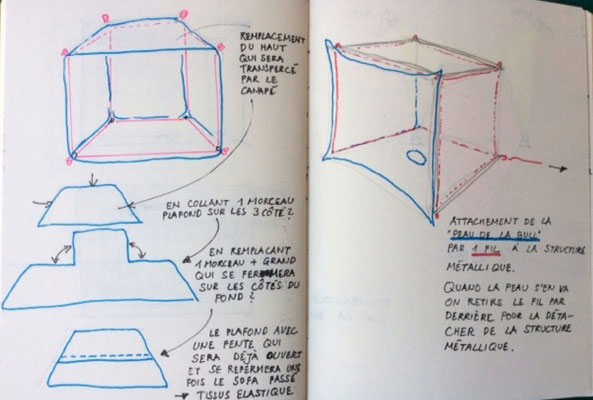 REMPLACEMENT
DU HAUT
QUI SERA
TRANSPERCÉ
PAR LE
CANAPÉ
EN COLLANT 1 MORCEAU
PLAFOND SUR LES 3 CÔTÉ?
EN REMPLAÇANT
1 MORCEAU + GRAND
QUI SE FERMERA
SUR LES CÔTÉS DU
FOND?
LE PLAFOND AVEC
UNE PENTE QUI
SERA DÉJÀ OUVERT
ET SE REFERMERA UNE
FOIS LE SOFA PASSÉ
→ TISSUS ELASTIQUE
ATTACHEMENT DE LA
"PEAU DE LA BULL"
PAR 1 FIL À LA STRUCTURE
MÉTALLIQUE.
QUAND LA PEAU S'EN VA
ON RETIRE LE FIL PAR
DERRIÈRE POUR LA DÉTA-
CHER DE LA STRUCTURE
MÉTALLIQUE.